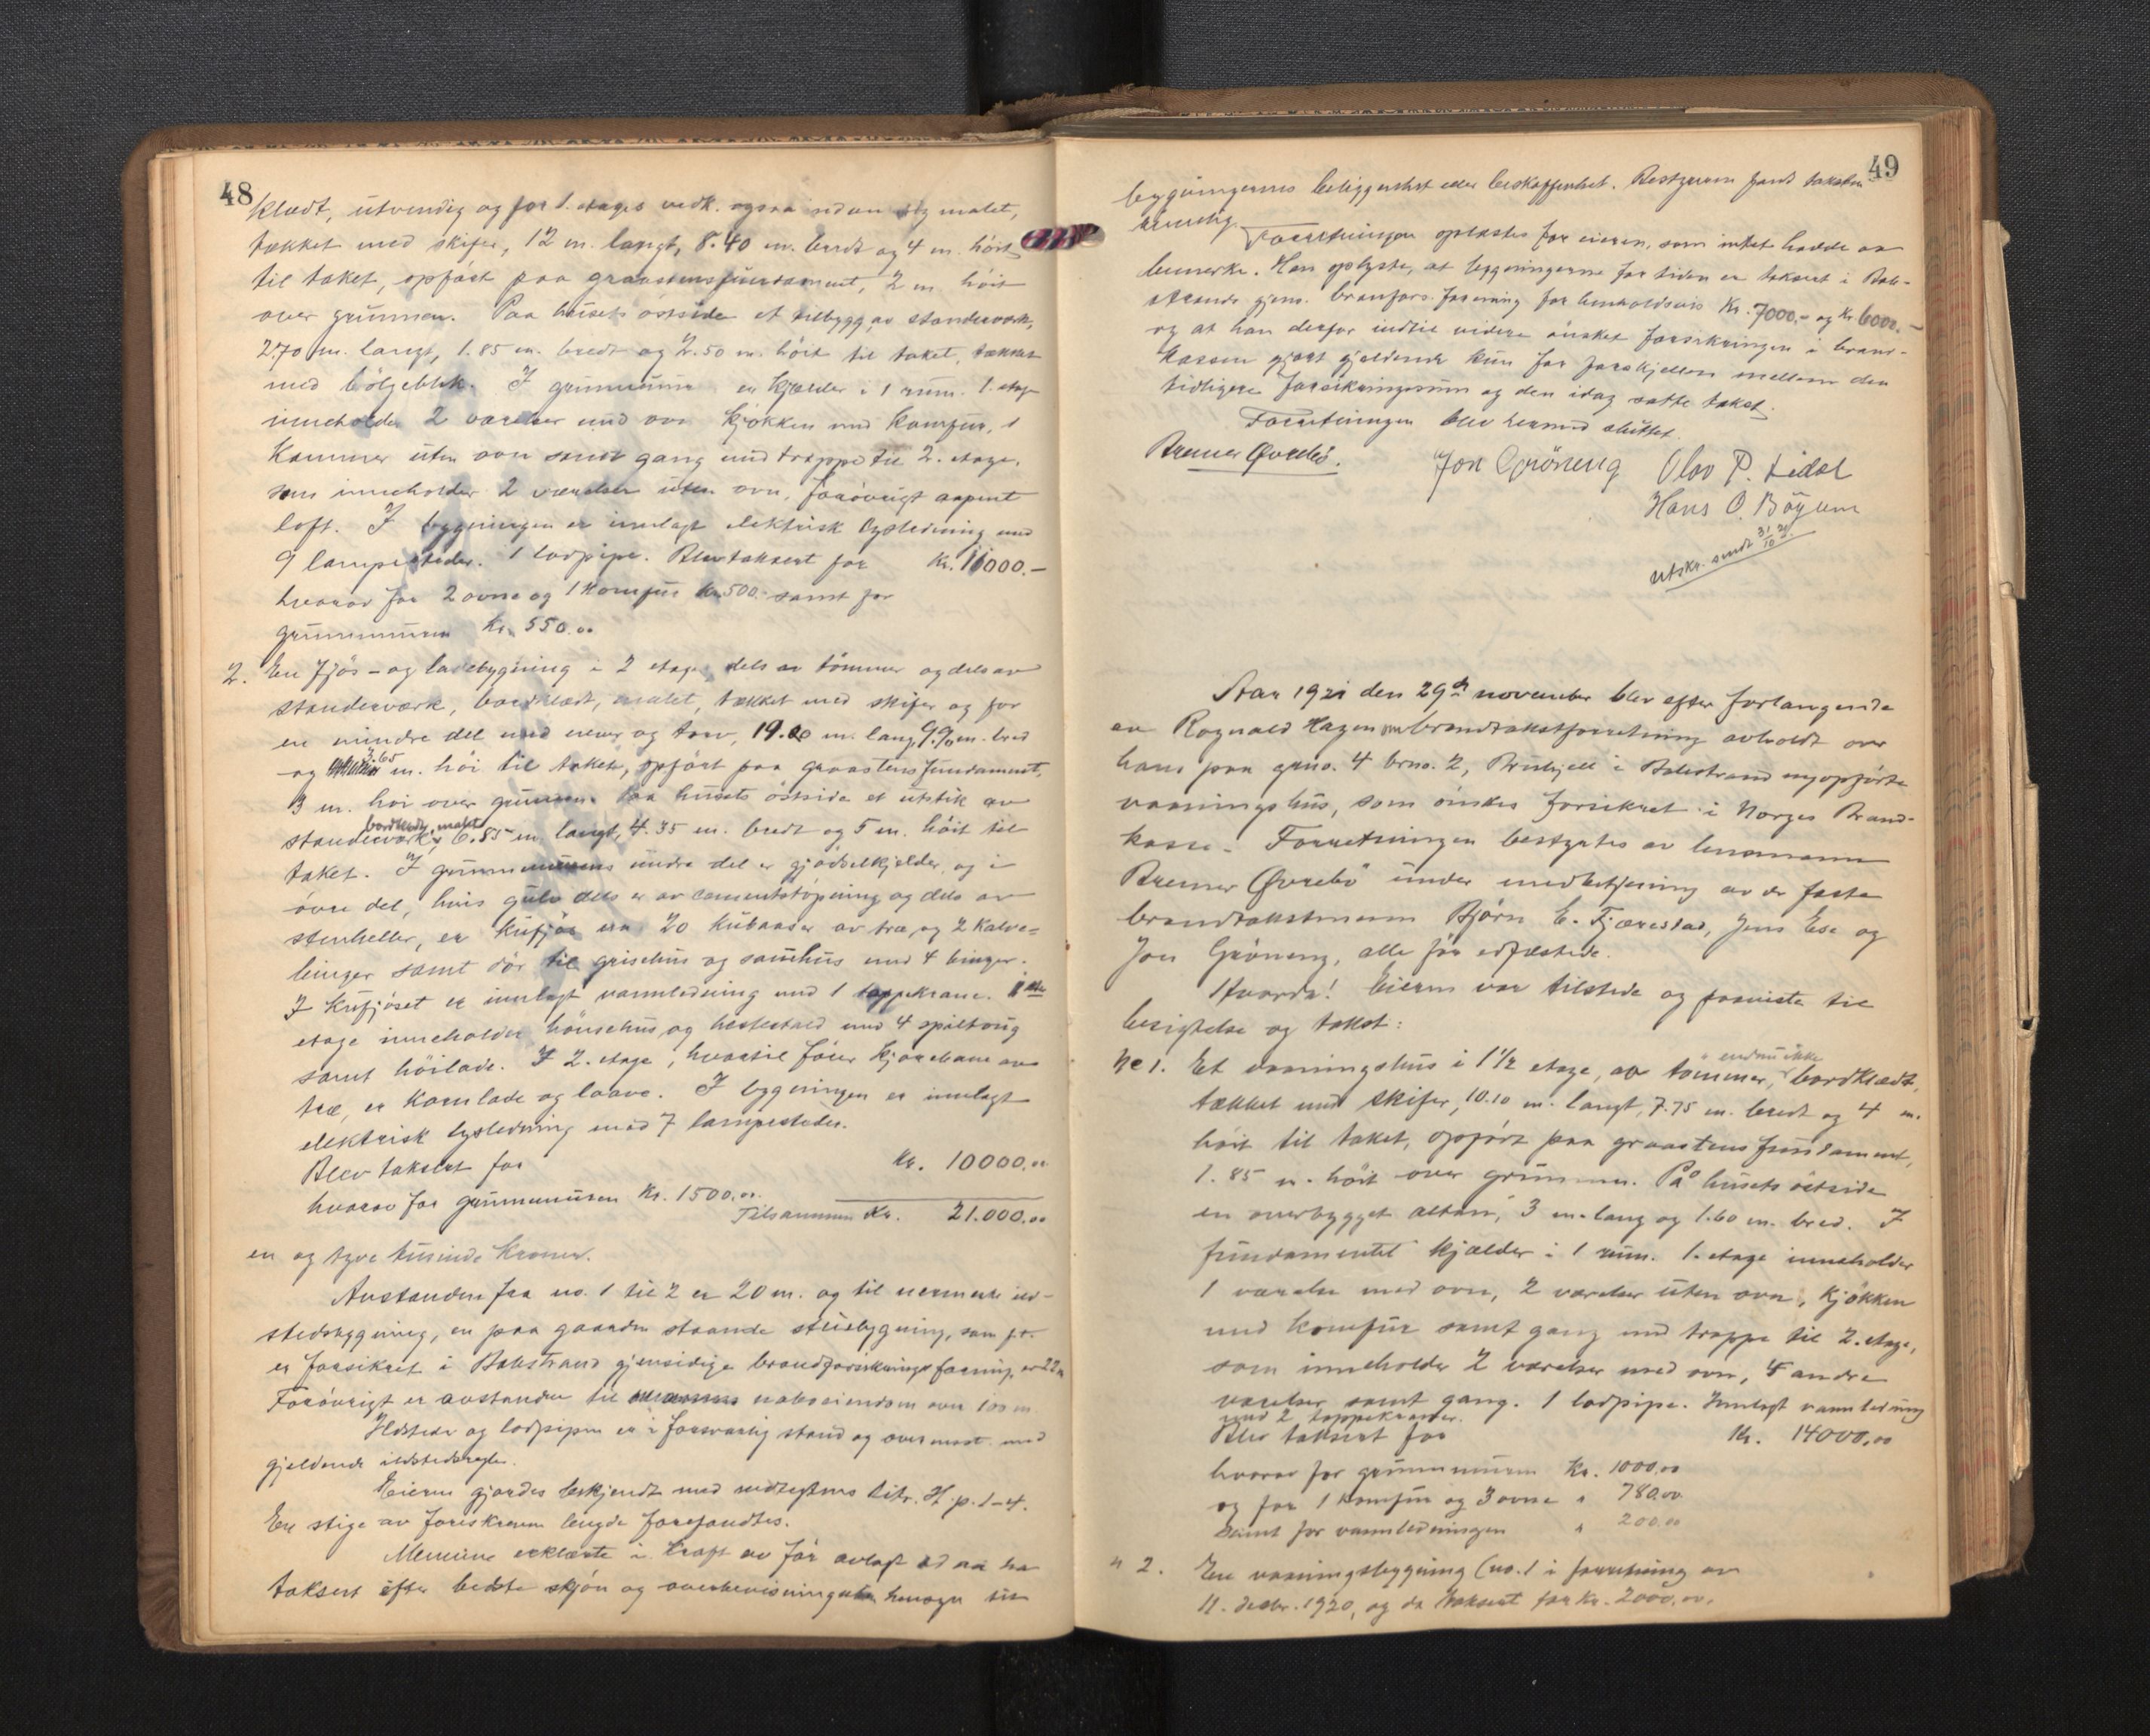 48
klædt, utvendig og for 1. etages vedk. ogsaa indvendig malet,
tækket med skifer, 12 m. langt, 8.40 m. bredt og 4 m. höit
til taket, opfört paa graastensfundament, 2 m. höit
over grunnen. Paa husets östside et tilbygg av standerværk,
2.70 m. langt, 1.85 m. bredt og 2.50 m. höit til taket, tækket
med bölgeblik. I grunnmuren er kjælder i 1 rum. 1. etage
inneholder 2 værelser med ovn kjökken med komfur, 1
kammer uten ovn samt gang med trappe til 2. etage,
som inneholder 2 værelser uten ovn, forövrigt aapent
loft. I bygningen er innlagt elektrisk lysledning med
9 lampesteder. 1 lodpipe. Blev taksert for Kr. 11000.-
hvorav for 2 ovne og 1 komfur kr. 500.- samt for
grunnmuren Kr. 550.00
2. En fjös- og ladebygning i 2 etager, dels av tömmer og dels av
standerværk, bordklædt, malet, tækket med skifer og for
en mindre del med never og torv, 19.00 m. lang, 9.90 m. bred
og 5.65 m. höi til taket, opfört paa graastensfundament,
3 m. höi over grunnen. Paa husets östside et utstik av
standerværk, bordklædt, malet 6.85 m. langt, 4.35 m. bredt og 5 m. höit til
taket. I grunnmurens undre del er gjödselkjelder, og i
övre del, hvis gulv dels er av cementstöpning og dels av
stenheller, er kufjös med 20 kubaaser av træ, og 2 kalve=
binger samt dör til grisehus og sauhus med 4 binger.
I kufjöset er innlagt vannledning med 1 tappekrane. 1ste
etage inneholder hönsehus og hestestald med 4 spiltoug
samt höilade. I 2. etage, hvortil förer kjörebane av
træ, er kornlade og laave. I bygningen er innlagt
elektrisk lysledning med 7 lampesteder.
Blev taksert for Kr. 10000.00
hvorav for grunnmuren Kr. 1500.00.
Tilsammen Kr. 21.000.00
en og tyve tusinde kroner.
Avstanden fra no. 1 til 2 er 20 m. og til nermeste ild-
stedsbygning, en paa gaarden staaende stuebygning, som pt.
er forsikret i Balestrand gjensidige brandforsikringsforening, er 22 m
Forövrigt er avstanden til naboeiendom over 100 m.
Ildsteder og lodpiper er i forsvarlig stand og overensst. med
gjeldende ildstedsregler.
Eieren gjordes bekjendt med vedtegtens litr. H p. 1-4.
En stige av foreskreven lengde forefandtes.
Mennene erklærte i kraft av för avlagt ed aa ha
taksert efter bedste skjön og overbevisning uten hensyn til
49
bygningernes beliggenhet eller beskaffenhet. Bestyreren fandt taksten
rimelig.
Forretningen oplæstes for eieren, som intet hadde at
bemerke. Han oplyste, at bygningerne for tiden er taksert i Bale-
strands gjens. branfors. forening for henholdsvis Kr. 7000.- og Kr. 6000.-
og at han derfor indtil videre önsket forsikringen i brand-
kassen gjort gjeldende kun for forskjellen mellem den
tidligere forsikringssum og den idag satte takst.
Forretningen blev hermed sluttet.
Bremer Øvrebö. Jon Gröneng Olav P. Lidal
Hans O. Böyum
utskr. sendt 31/10 21.
Aar 1921 den 29de november blev efter forlangende
av Ragnvald Hagen brandtakstforretning avholdt over
hans paa grno. 4 brno. 2, i Balestrand nyopförte
vaaningshus, som önskes forsikret i Norges Brand-
kasse. Forretningen bestyrtes av lensmann
Bremer Øvrebö under medbetjening av de faste
brandtakstmenn Björn E. Fjærestad, Jens Ese og
Jon Gröneng, alle för edfæstede.
Hvorda! Eieren var tilstede og paaviste til
besigtelse og takst:
No 1. Et vaaningshus i 1½ etage, av tömmer, endnu ikke bordklædt,
tækket med skifer, 10.10 m. langt, 7.75 m. bredt og 4 m.
höit til taket, opfört paa graastensfundament,
1.85 m. höit over grunnen. På husets östside
en overbygget altan, 3 m. lang og 1.60 m. bred. I
fundamentet kjælder i 1 rum. 1. etage inneholder
1 værelse med ovn, 2 værelser uten ovn, kjökken
med komfur samt gang med trappe til 2. etage,
som inneholder 2 værelser med ovn, 4 andre
værelser samt gang. 1 lodpipe. Innlagt vannledning
med 2 tappekraner.
Blev taksert for Kr. 14000.00
hvorav for grunnmuren Kr. 1000.00
og for 1 komfur og 3 ovne " 780.00
samt for vannledningen " 200.00
" 2. En vaaningsbygning (no. 1 i forretning av
11. desbr. 1920, og da taksert for Kr. 2000.00.